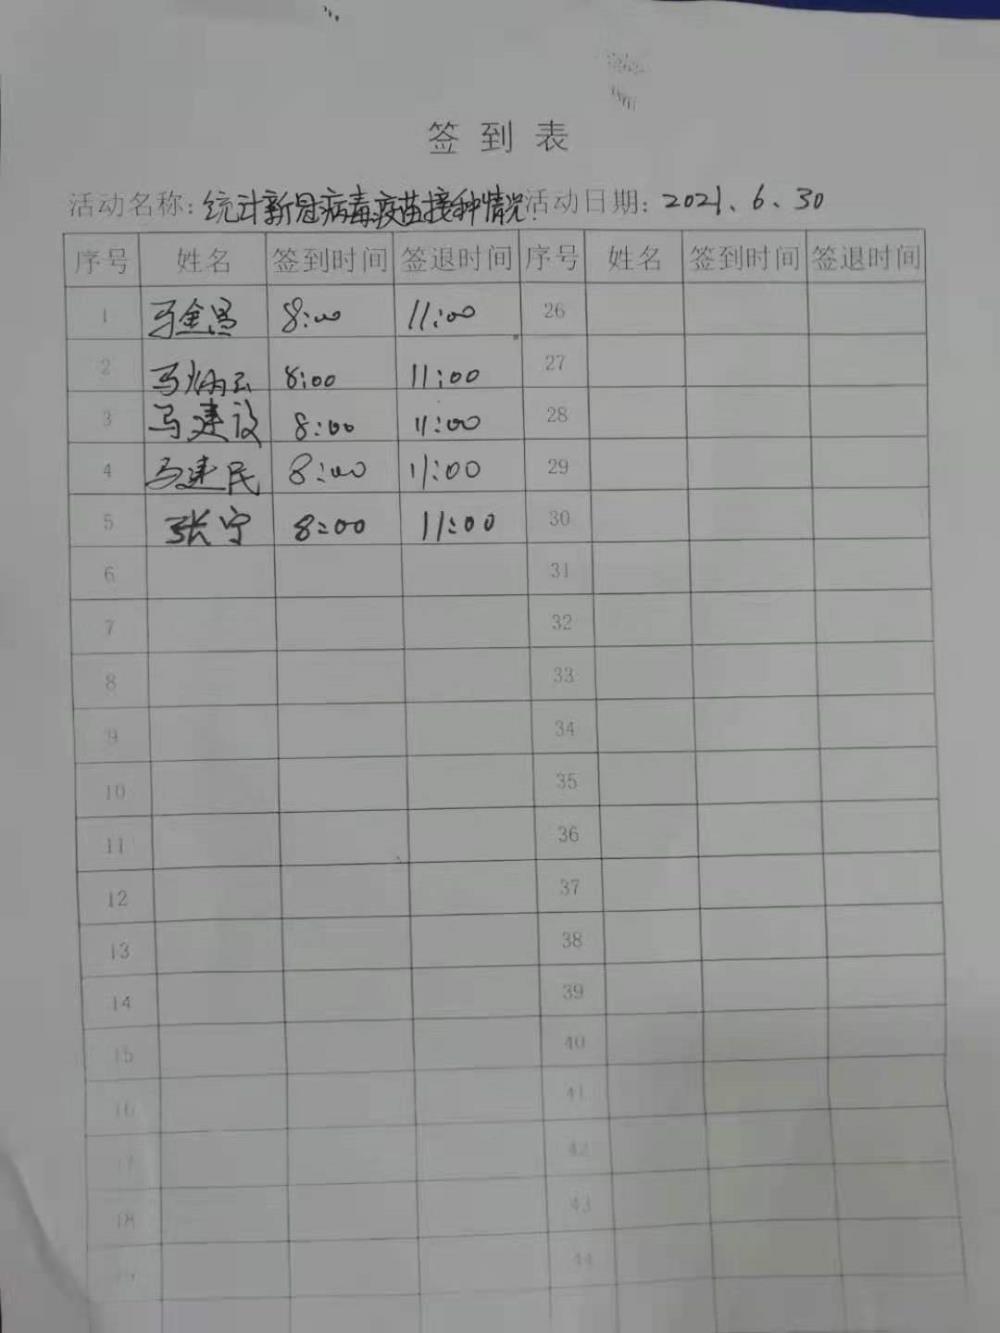 签到表
活动名称:统计新冠病毒疫苗接种情况 活动日期:2021、6、30
序号 姓名 签到时间 签退时间 序号 姓名 签到时间 签退时间
1 马金昌 8:00 11:00 26
2 马炳云 8:00 11:00 27
3 马建设 8:00 11:00 28
4 马建民 8:00 11:00 29
5 张宁 8:00 11:00 30
6 31
7 32
8 33
9 34
10 35
11 36
12 37
13 38
14 39
15 40
16 41
17 42
18 43
19 44